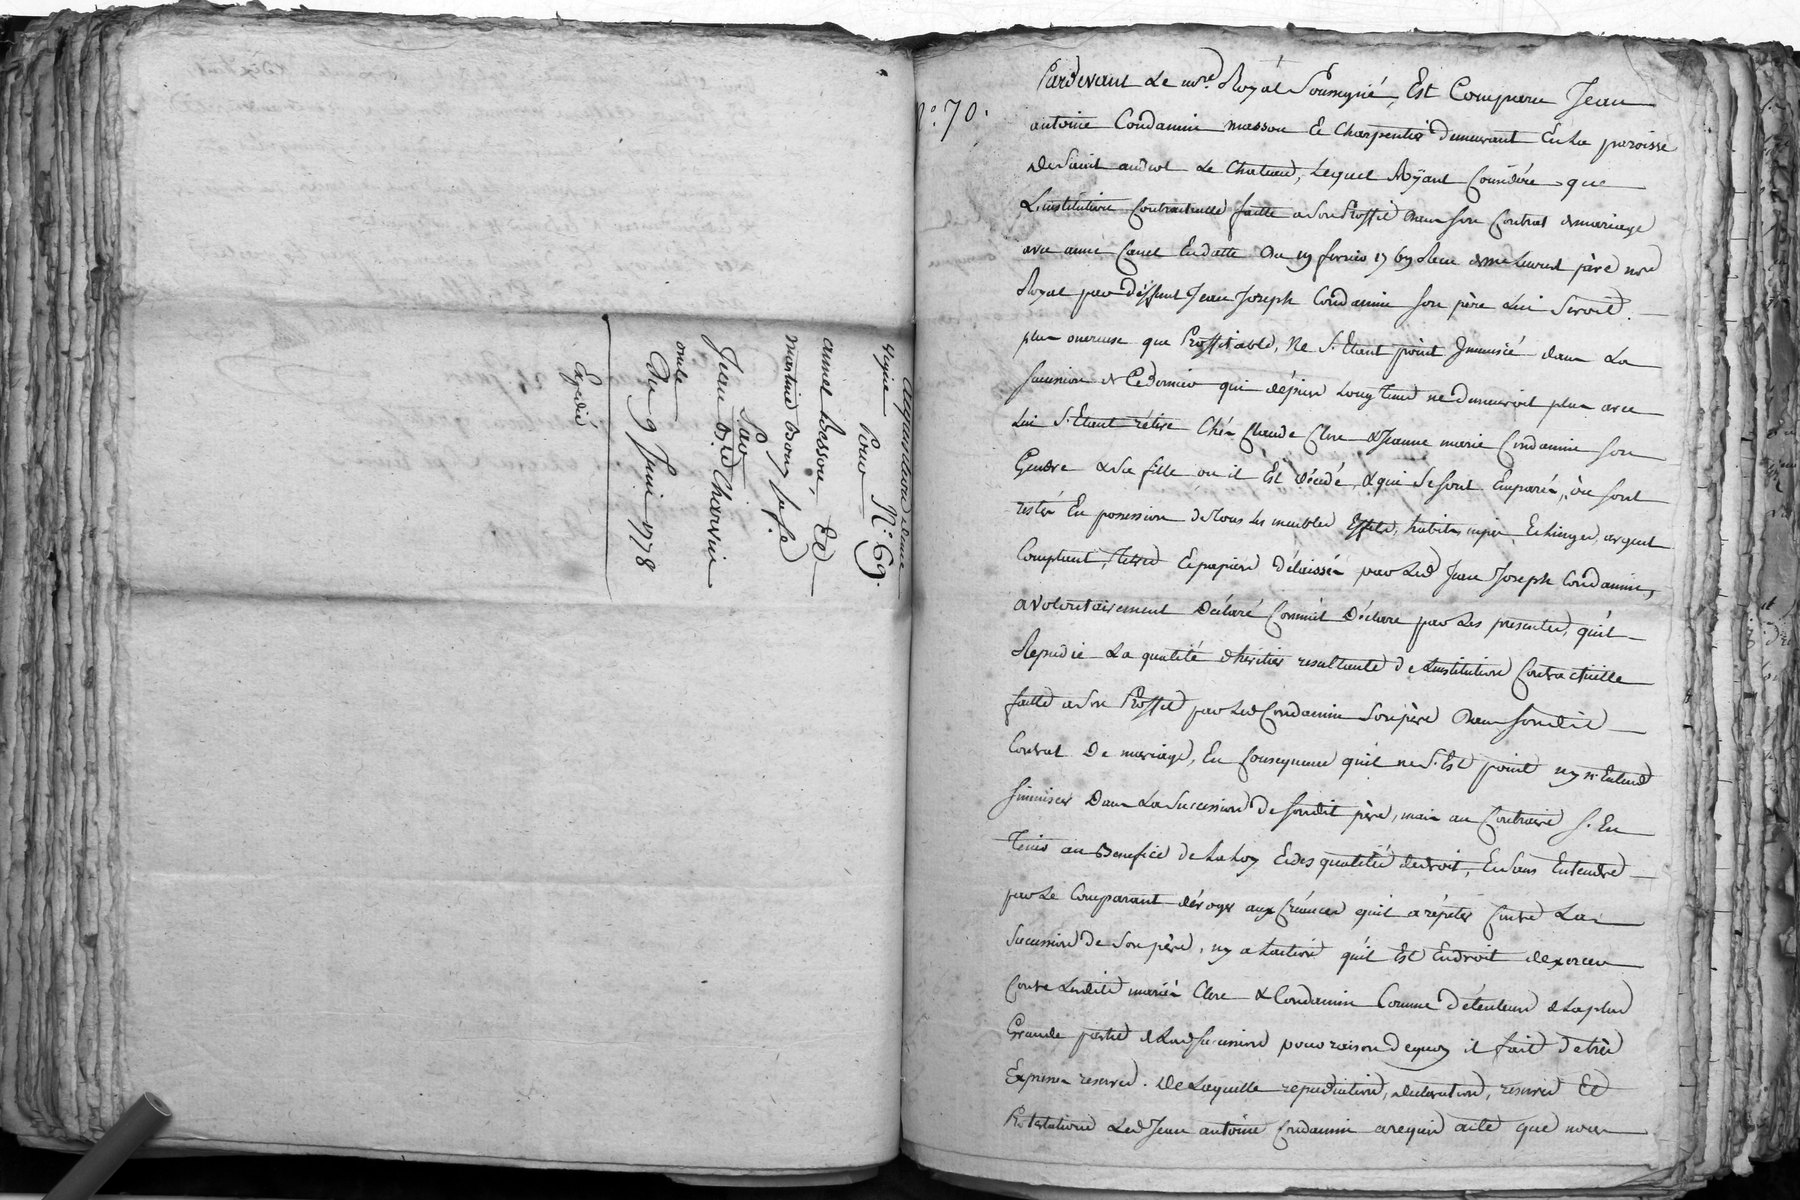 augmentation d'hipoteque
vigine
Pour N.º 69.
annet Besson Et
martine Bouy sa fe
Par
Jean B.te Charvin
oncle
Du 9 Juin 1778
Expedié
N.º 70.
Pardevant Le nre. Royal Soussigné, Est Comparu Jean
antoine Condamin masson & Charpentier demeurant En La paroisse
de Saint andeol Le Chateau, Lequel Aÿant Considéré que
L'institution Contractuelle faitte a Son Proffit dans Son Contrat de mariage
avec anne Canet En datte du 19 fevrier 1769 Recu père nre
Royal par deffunt Jean Joseph Condamin Son père Lui Seroit
plus onereuse que Proffitable, Ne S'Etant point Immiscé dans La
Succession de Ce dernier qui dépuis Long tems ne demeuroit plus avec
Lui S'Etant rétiré Chés Claude Clere & Jeanne marie Condamin Son
Gendre & Sa fille ou il Est décédé, & qui Se Sont Emparés, & Sont
restés En possession de Tous Les meubles Effets, habits Et Linges, argent
Comptant, Titres Et papiers délaissés par Led Jean Joseph Condamin,
a volontairement déclaré Comme il déclare par Les presentes, qu'il
Repudie La qualité d'heritier resultante de L'institution Contractuelle
faitte a Son Proffit par Led Condamin Son père dans Sondit
Contrat de mariage, En Consequence qu'il ne S'Est point ny n'Entend
S'immiscer dans La Succession de Sondit père, mais au Contraire S'En
Tenir au Benefice de La Loy Et des qualités de droit, En Sans Entendre
par Le Comparant déroger aux Créances qu'il a répéter Contre La
Succession de Son père, ny a L'action qu'il Est En droit d'exercer
Contre Lesdits mariés Clere & Condamin Comme détenteurs de La plus
Grande partie de Lad Succession pour raison de quoy il fait de très
Expresses reserves. De Laquelle repudiation, declaration, reserves Et
Protestations Led Jean antoine Condamin a requis acte que nous